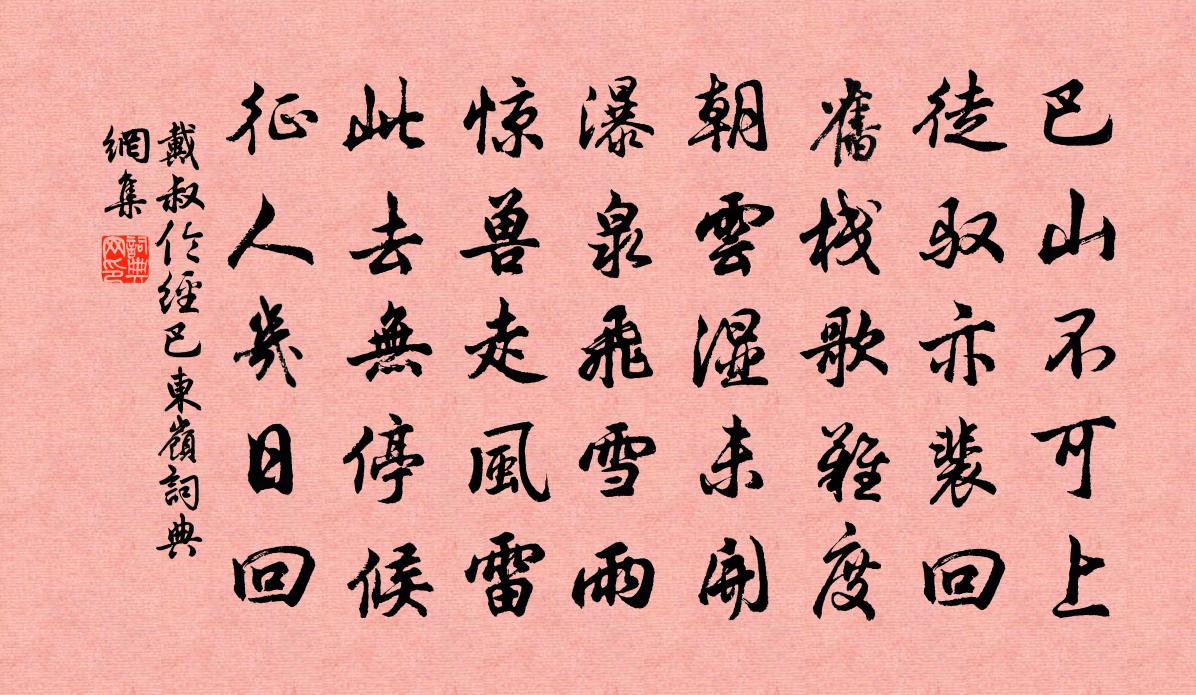 巴山不可上
徒驭亦裴回
舊栈歌難度
朝雲湿未開
瀑泉飛雪雨
惊兽走風雷
此去無停候
征人幾日回
戴叔伦經巴東嶺詞典
網集
詞典
网印